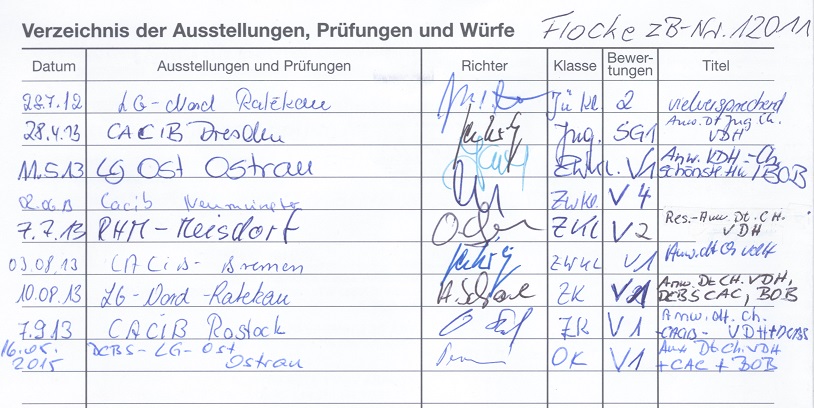 Verzeichnis der Ausstellungen, Prüfungen und Würfe Flocke ZB-Nr. 12011
Datum Ausstellungen und Prüfungen Richter Klasse Bewer-tungen Titel
28.7.12 LG-Nord Ratekau Jü Kl. 2 vielversprechend
28.4.13 CACIB Dresden Jug. SG1 Anw. Dt Jug Ch. VDH
11.5.13 LG Ost Ostrau Zwkl. V1 Anw. VDH-Ch schönste Hü / BOB
02.06.13 Cacib Neumünster Zwkl. V4
7.7.13 RHM-Meisdorf ZKl V2 Res.-Anw. Dt. CH. VDH
03.08.13 CACIB - Bremen ZWKL V1 Anw. dt Ch
10.08.13 LG-Nord-Ratekau ZK V1 Anw. Dt CH. VDH, DCBS CAC, BOB
7.9.13 CACIB Rostock ZK V1 Anw. dt. Ch. +CACIB- VDH+DCBS
16.05.2015 DCBS-LG-Ost Ostrau OK V1 Anw Dt Ch. VDH + CAC + BOB